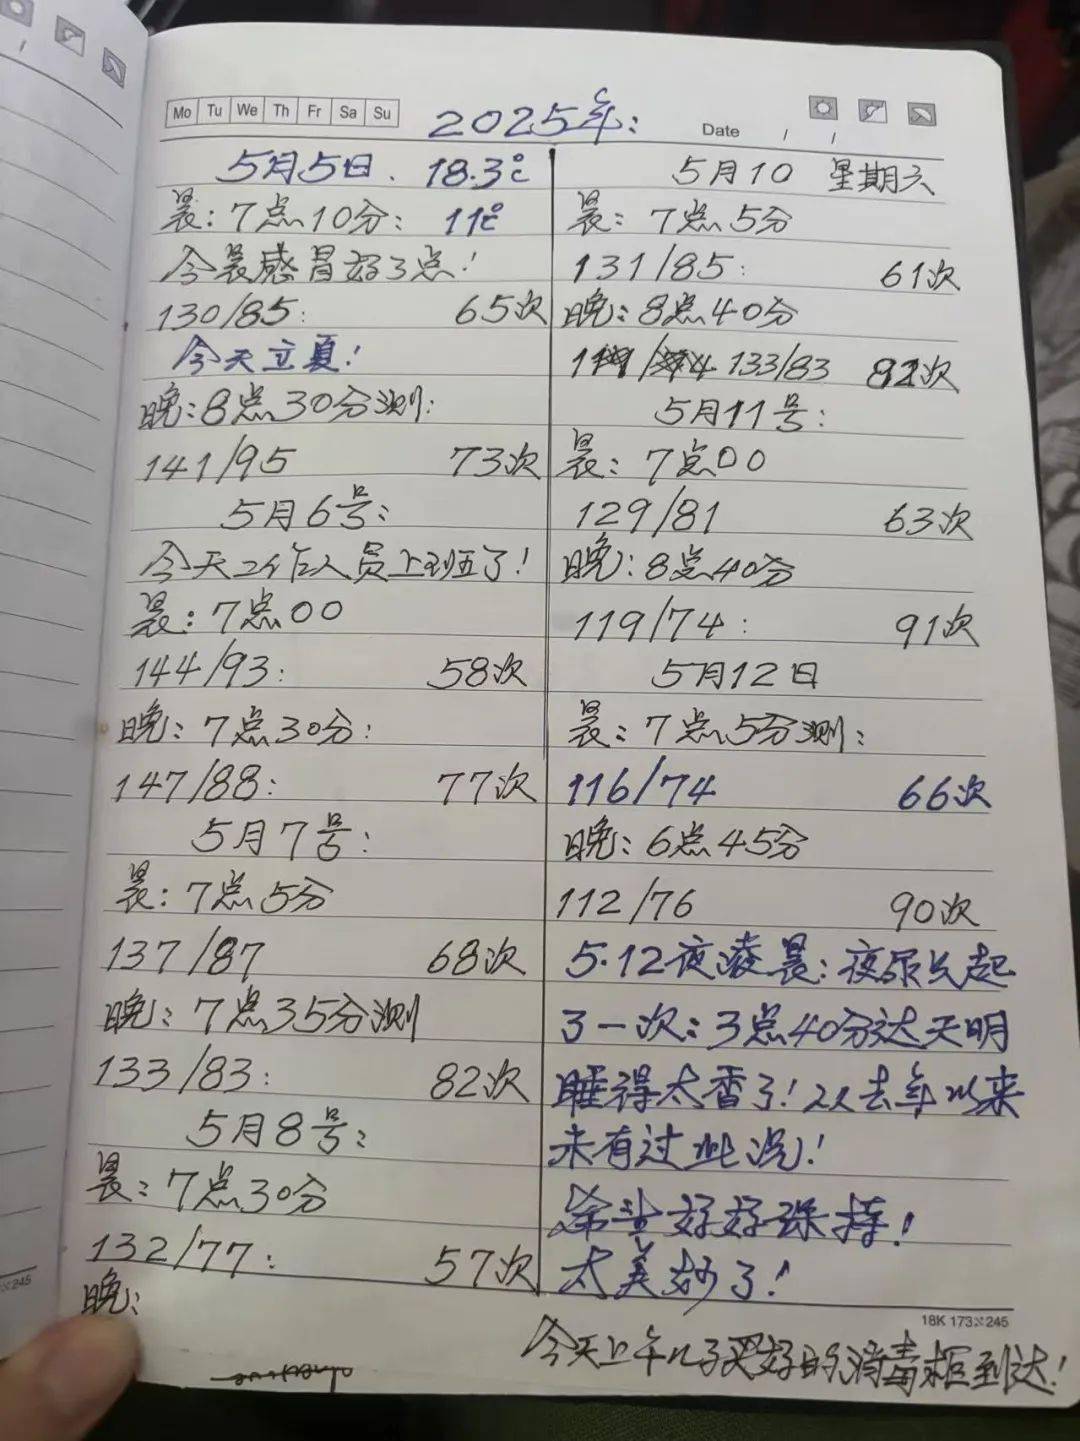 Mo Tu We Th Fr Sa Su
2025年:
Date / /
5月5日. 18.3℃
晨:7点10分: 11℃
今晨感冒好了点!
130/85: 65次
今天立夏!
晚:8点30分测:
141/95 73次
5月6号:
今天工作人员上班了!
晨:7点00
144/93: 58次
晚:7点30分:
147/88: 77次
5月7号:
晨:7点5分
137/87 68次
晚:7点35分测
133/83: 82次
5月8号:
晨:7点30分
132/77: 57次
晚:
5月10 星期六
晨:7点5分
131/85: 61次
晚:8点40分
133/83 82次
5月11号:
晨:7点00
129/81 63次
晚:8点40分
119/74: 91次
5月12日
晨:7点5分测:
116/74 66次
晚:6点45分
112/76 90次
5.12夜凌晨:夜尿只起
了一次:3点40分达天明
睡得太香了!从去年以来
未有过此况!
好好保持!
太美妙了!
18K 173×245
今天上午儿子买好的消毒柜到达!
×245